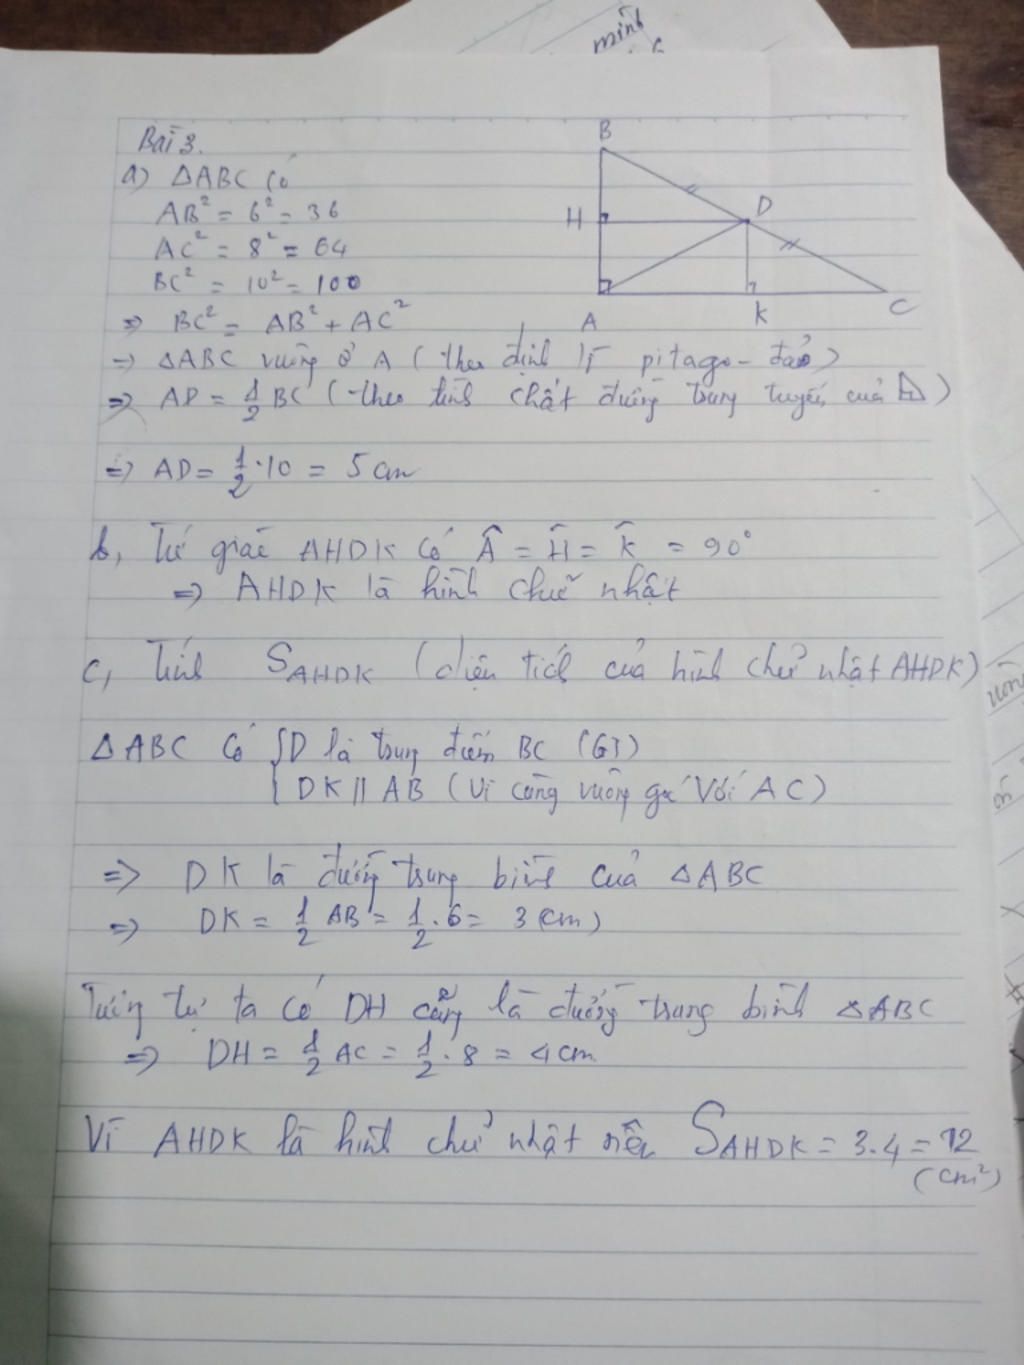 minh
Bài 3.
a) ΔABC có
AB² = 6² = 36
AC² = 8² = 64
BC² = 10² = 100
⇒ BC² = AB² + AC²
⇒ ΔABC vuông ở A (theo định lý pitago - đảo)
⇒ AD = 1/2 BC (theo tính chất đường trung tuyến của ⊿)
⇒ AD = 1/2 · 10 = 5 cm
B
H
D
A
K
C
b, Tứ giác AHDK có Â = Ĥ = K̂ = 90°
⇒ AHDK là hình chữ nhật
c, Tính S AHDK (diện tích của hình chữ nhật AHDK)
ΔABC có { D là trung điểm BC (GT)
DK // AB (Vì cùng vuông góc với AC)
⇒ DK là đường trung bình của ΔABC
⇒ DK = 1/2 AB = 1/2 . 6 = 3 (cm)
Tương tự ta có DH cũng là đường trung bình ΔABC
⇒ DH = 1/2 AC = 1/2 . 8 = 4 cm
Vì AHDK là hình chữ nhật nên S AHDK = 3.4 = 12
(cm²)